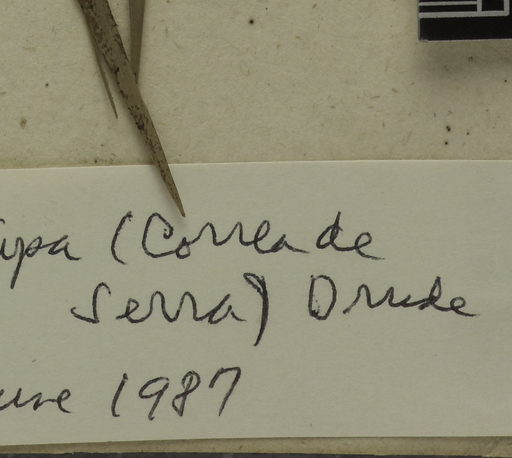 ypa (Correa de
Serra) Drude
une 1987